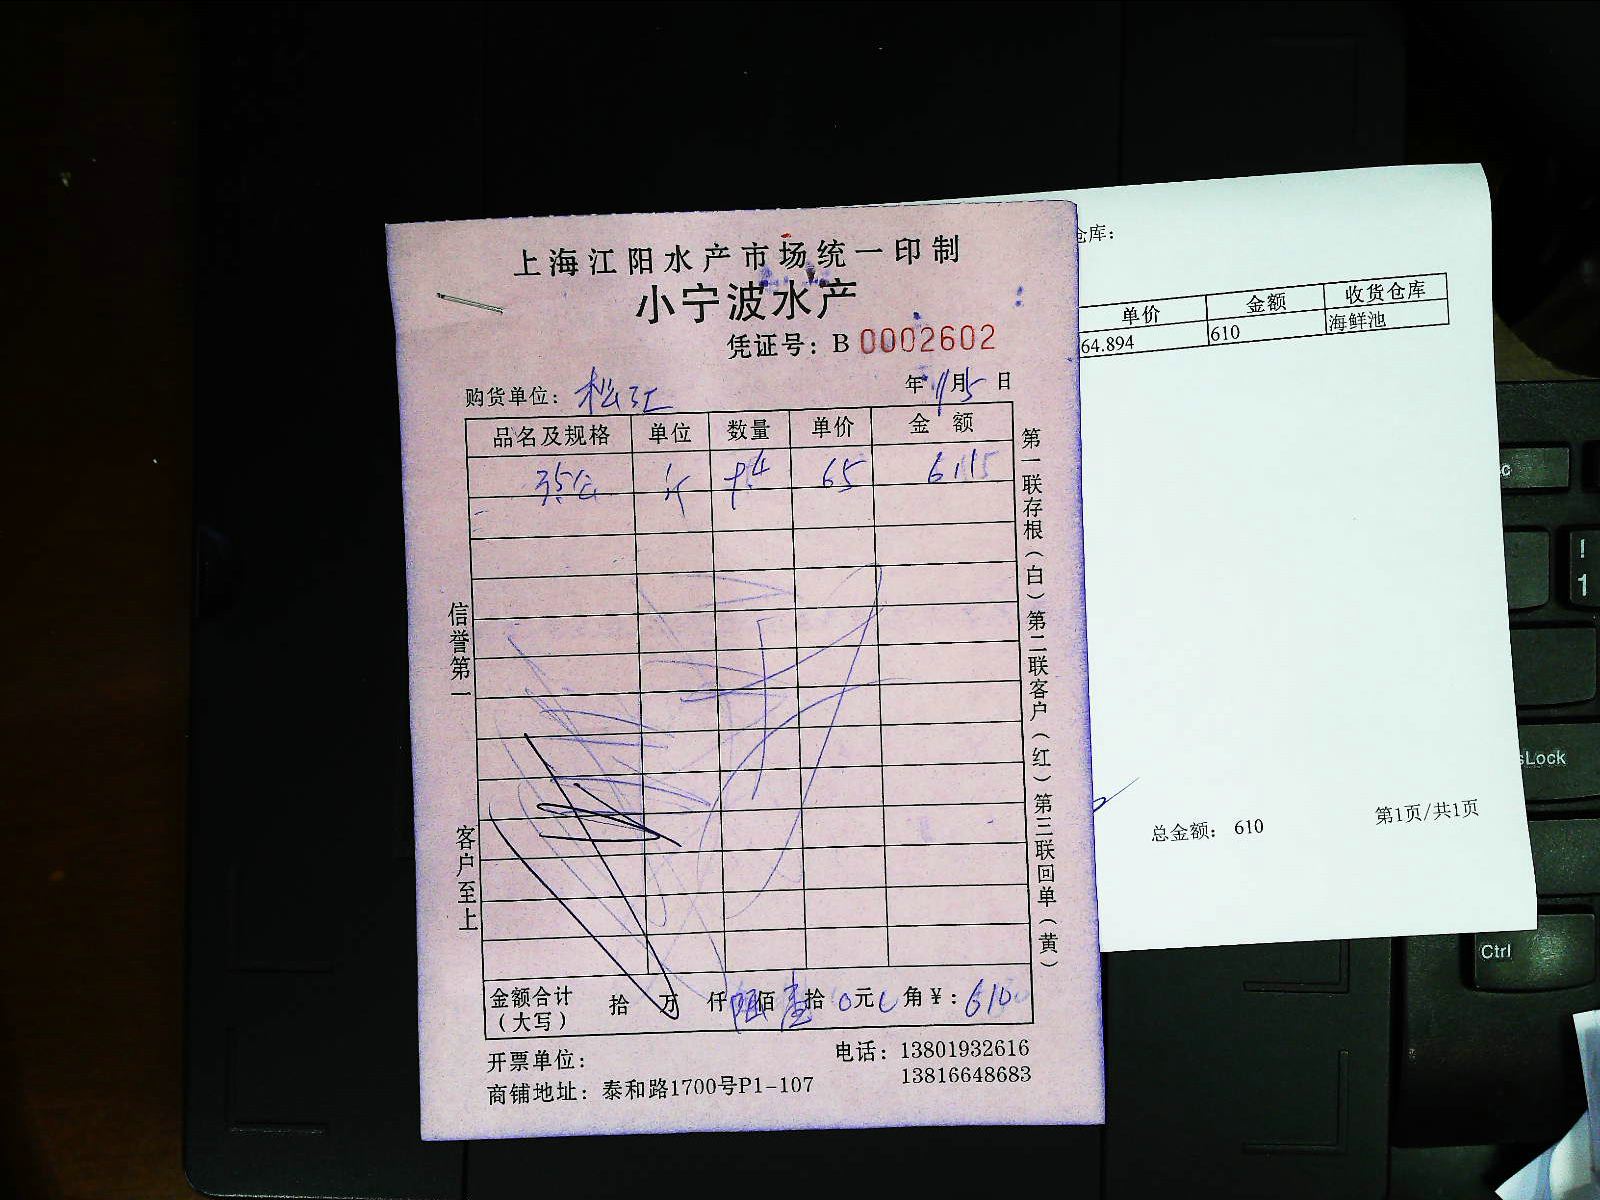 上海江阳水产市场统一印制
小宁波水产
凭证号：B 0002602
购货单位：松江 年 月 日
品名及规格 单位 数量 单价 金额
65 611
第一联存根（白）第二联客户（红）第三联回单（黄）
信誉第一
客户至上
金额合计（大写） 拾 万 仟 陆佰 壹拾 0元 0角 ¥：610
开票单位： 电话：13801932616
13816648683
商铺地址：泰和路1700号P1-107
仓库：
单价 金额 收货仓库
64.894 610 海鲜池
总金额： 610 第1页/共1页
!
1
sLock
Ctrl